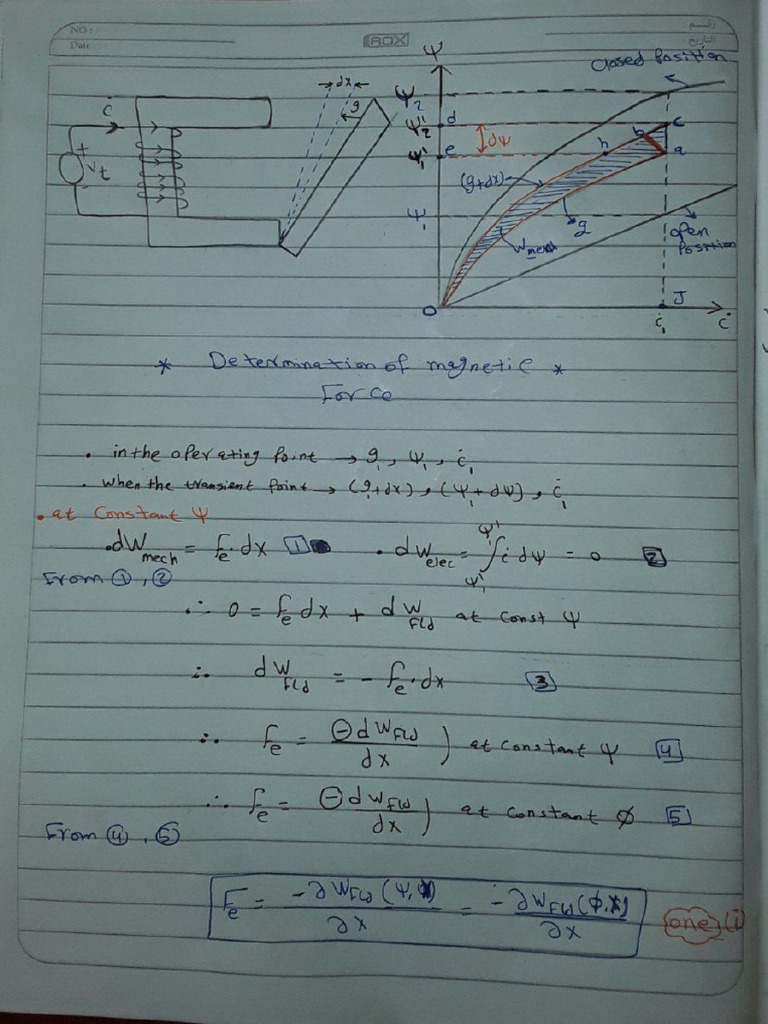 NO :
Date :
ROX
رقــم
التاريخ
dx
g
i
+
Vt
-
Ψ
Closed Position
Ψ2
Ψ2' d
dΨ
c
b
Ψ1' e
h
a
(g+dx)
g
Wmech
Ψ1
open Position
O
J
i1
i
* Determination of magnetic *
Force
. in the operating Point → g1, Ψ1, i1
. when the transient Point → (g+dx), (Ψ1+dΨ), i1
. at Constant Ψ
. dWmech = fe . dx [1] . dWelec = ∫Ψ1'^Ψ1' i dΨ = 0 [2]
From ①, ②
∴ 0 = fe dx + dWFLd at const Ψ
∴ dWFLd = - fe . dx [3]
∴ fe = ⊖dWFLd/dx ) at constant Ψ [4]
∴ fe = ⊖dWFLd/dx ) at constant Ø [5]
From ④, ⑤
Fe = -∂WFLd(Ψ, )/∂x = -∂WFLd(Ø,x)/∂x
one